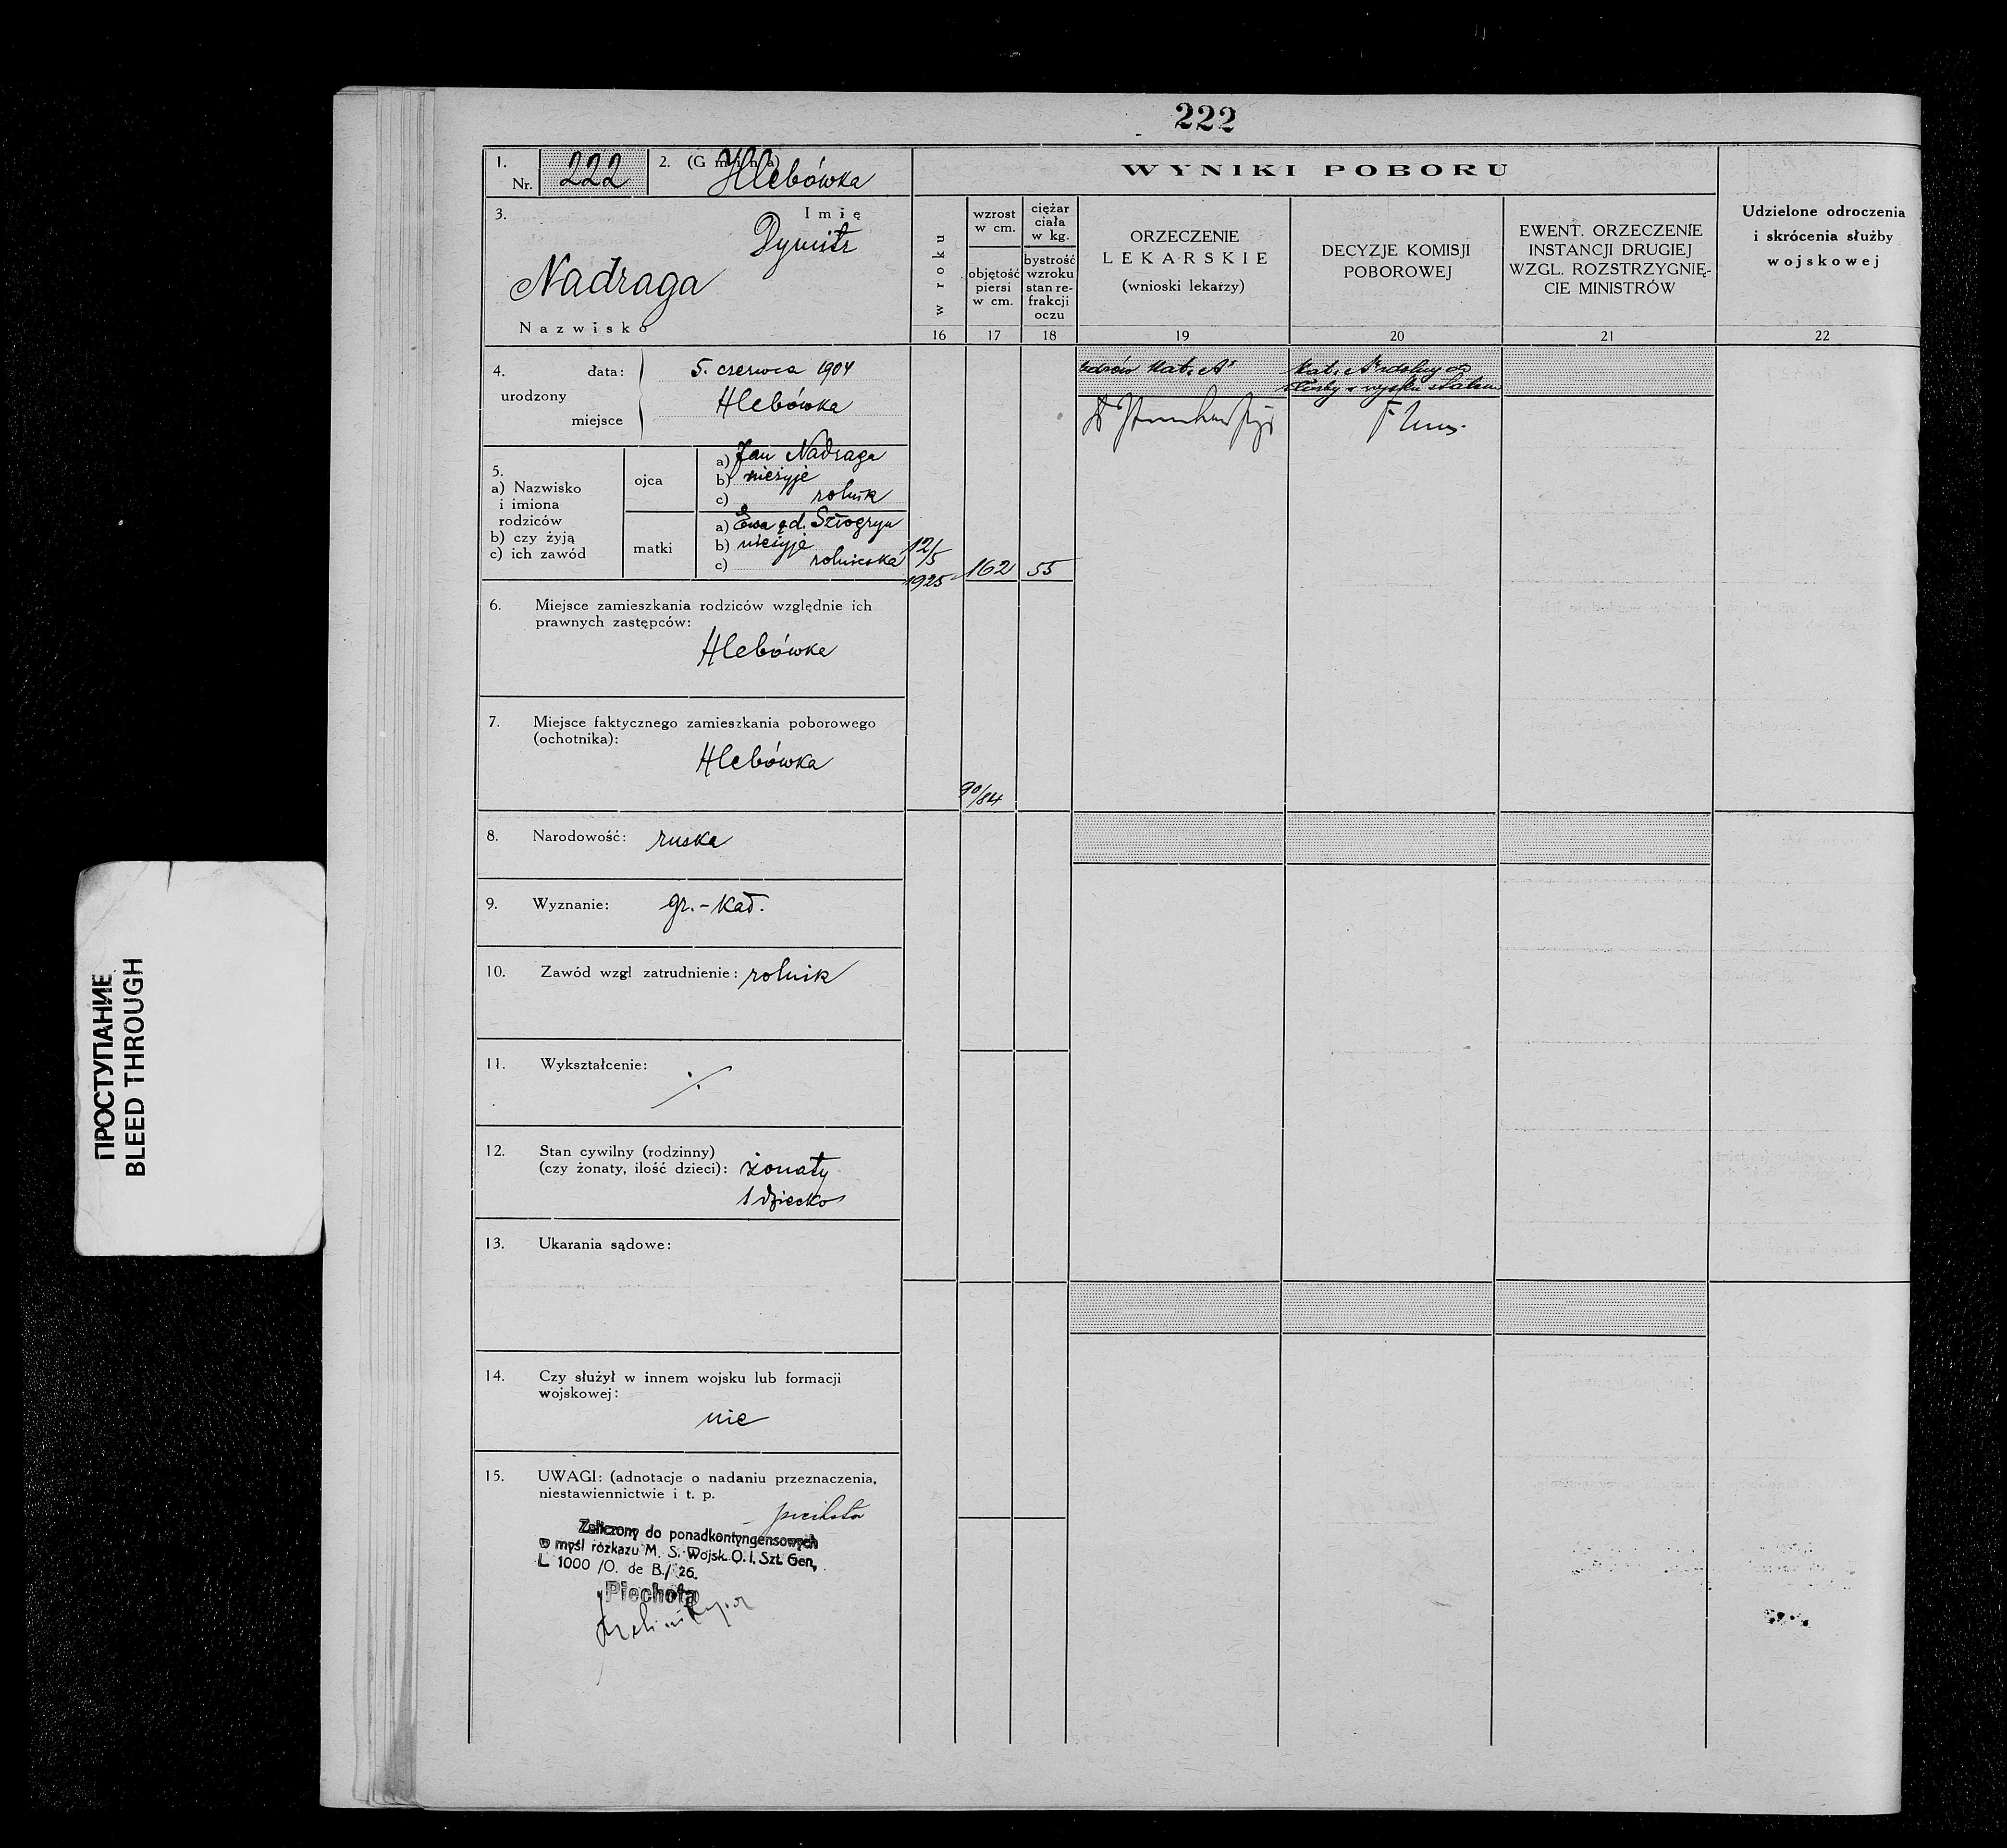 222
1.
Nr.
222
2. (Gmina)
Hlebówka
3.
Imię
Dymitr
Nadraga
Nazwisko
WYNIKI POBORU
w roku
16
wzrost
w cm.
objętość
piersi
w cm.
17
ciężar
ciała
w kg.
bystrość
wzroku
stan re-
frakcji
oczu
18
ORZECZENIE
LEKARSKIE
(wnioski lekarzy)
19
DECYZJE KOMISJI
POBOROWEJ
20
EWENT. ORZECZENIE
INSTANCJI DRUGIEJ
WZGL. ROZSTRZYGNIĘ-
CIE MINISTRÓW
21
Udzielone odroczenia
i skrócenia służby
wojskowej
22
4.
urodzony
data: 5. czerwca 1904
miejsce Hlebówka
5.
a) Nazwisko
i imiona
rodziców
b) czy żyją
c) ich zawód
ojca
a) Jan Nadraga
b) nieżyje
c) rolnik
matki
a) Ewa
b) nieżyje
c) rolniczka
12/5
1925
162
55
90/84
Kat. A
Kat. A zdolny do
służby
6. Miejsce zamieszkania rodziców względnie ich
prawnych zastępców:
Hlebówka
7. Miejsce faktycznego zamieszkania poborowego
(ochotnika):
Hlebówka
8. Narodowość: ruska
9. Wyznanie: gr.-kat.
10. Zawód wzgl zatrudnienie: rolnik
11. Wykształcenie:
12. Stan cywilny (rodzinny)
(czy żonaty, ilość dzieci): żonaty
1 dziecko
13. Ukarania sądowe:
14. Czy służył w innem wojsku lub formacji
wojskowej:
nie
15. UWAGI: (adnotacje o nadaniu przeznaczenia,
niestawiennictwie i t. p.
piechota
Zaliczony do ponadkontyngensowych
w myśl rozkazu M. S. Wojsk. O. I. Szt. Gen,
L 1000 /O. de B./ 26.
Piechota
ПРОСТУПАНИЕ
BLEED THROUGH